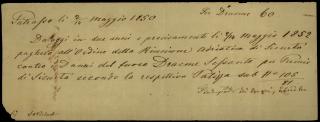 Patrasso li 2/14 Maggio 1850 Per Dracme 60
Da oggi in due anni e precisamente li 2/14 Maggio 1852
pagherò all'Ordine della Riunione Adriatica di Sicurtà
contro i danni del fuoco Dracme Sessanta per Premio
di Sicurtà secondo la rispettiva Polizza sub N° 105